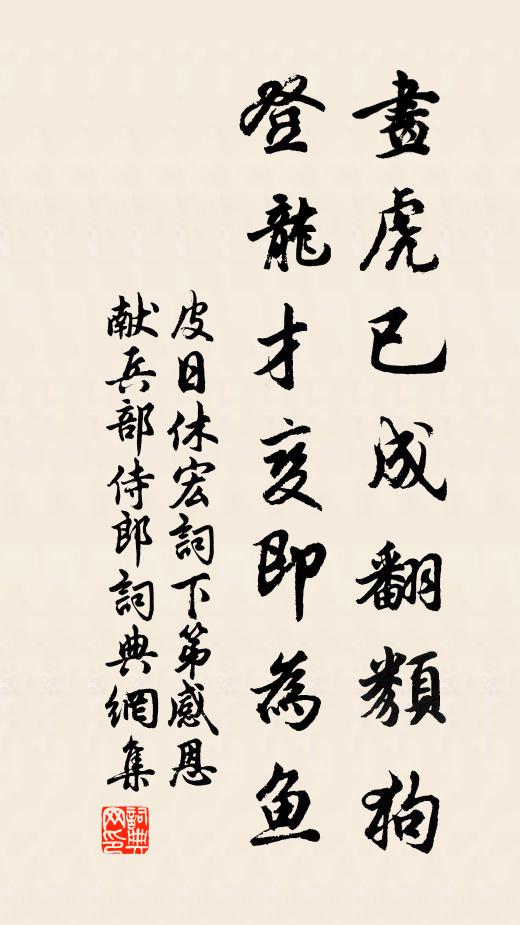 畫虎已成翻類狗
登龍才變即為魚
皮日休宏詞下第感恩
献兵部侍郎詞典網集
詞典網印